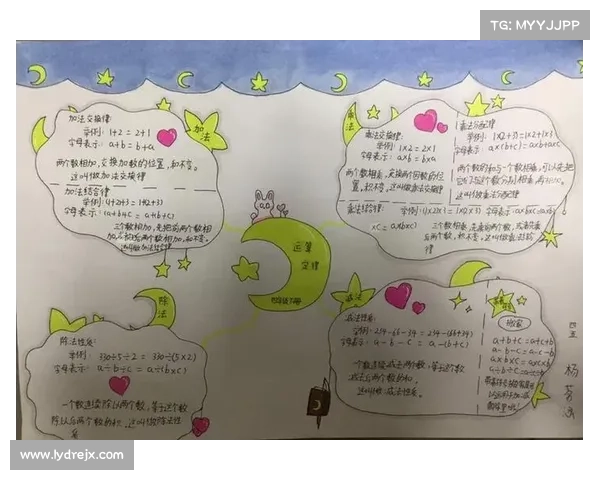 TG: MYYJJPP
加法
加法交换律
举例: 1+2=2+1
字母表示: a+b=b+a
两个数相加,交换加数的位置,和不变。
这叫做加法交换律
加法结合律
字母表示:(a+b)+c=a+(b+c)
三个数相加,先把前两个数相
加,
后两个数相加,和不变。
这叫做加法结合律
乘法
乘法交换律:
举例: 1×2=2×1
字母表示: a×b=b×a
两个数相乘,交换两个因数的位
置,积不变。这叫做乘法交换律
乘法分配律
举例: 1×(2+3)=1×2+1×3
字母表示: a×(b+c)=a×b+a×c
两个数的和与一个数相乘,可以先把
它们与这个数分别相乘,再
这叫做乘法分配律
乘法结合律:
举例:(1×2)×3=1×(2×3)
字母表示:
三个数相乘,先乘前两个数,或者先乘
后两个数,积不变。这叫做乘法结合
律
运算
定律
四年级下册
除法
除法性质:
举例: 330÷5÷2=330÷(5×2)
字母表示: a÷b÷c=a÷(b×c)
一个数连续除以两个数,等于这个数
除以后两个数的积,这叫做除法性
质
减法
减法性质:
举例: 234-66-34=234-(66+34)
字母表示: a-b-c=a-(b+c)
一个数连续减去两个数,等于这个数
减去后两个数的和,
这叫做减法性质。
搬家
a+b+c=a+c+b
a-b-c=a-c-b
a×b×c=a×c×b
a÷b÷c=a÷c÷b
四五
杨
www.lydrejx.com